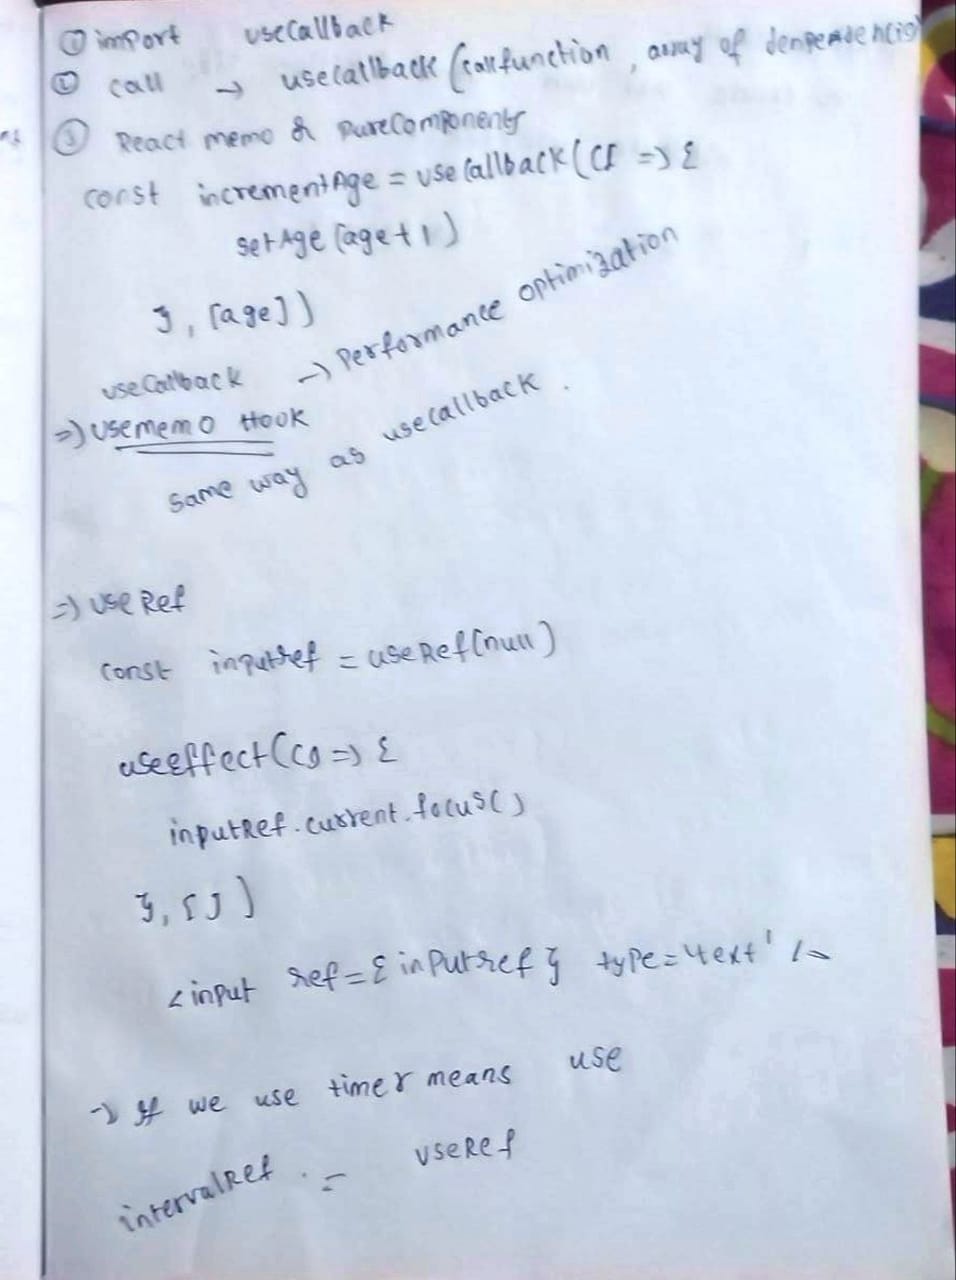 ① import useCallback
② call → usecallback (callfunction, array of dempendencis)
③ React memo & pureComponents
const incrementAge = useCallback(() => {
setAge (age+1)
}, [age])
useCallback → Performance optimization
⇒) usememo Hook
same way as usecallback.
⇒) useRef
const inputref = useRef(null)
useeffect(() => {
inputRef.current.focus()
}, [])
<input ref={inputref} type='text' />
→ If we use timer means use
intervalRef. = useRef